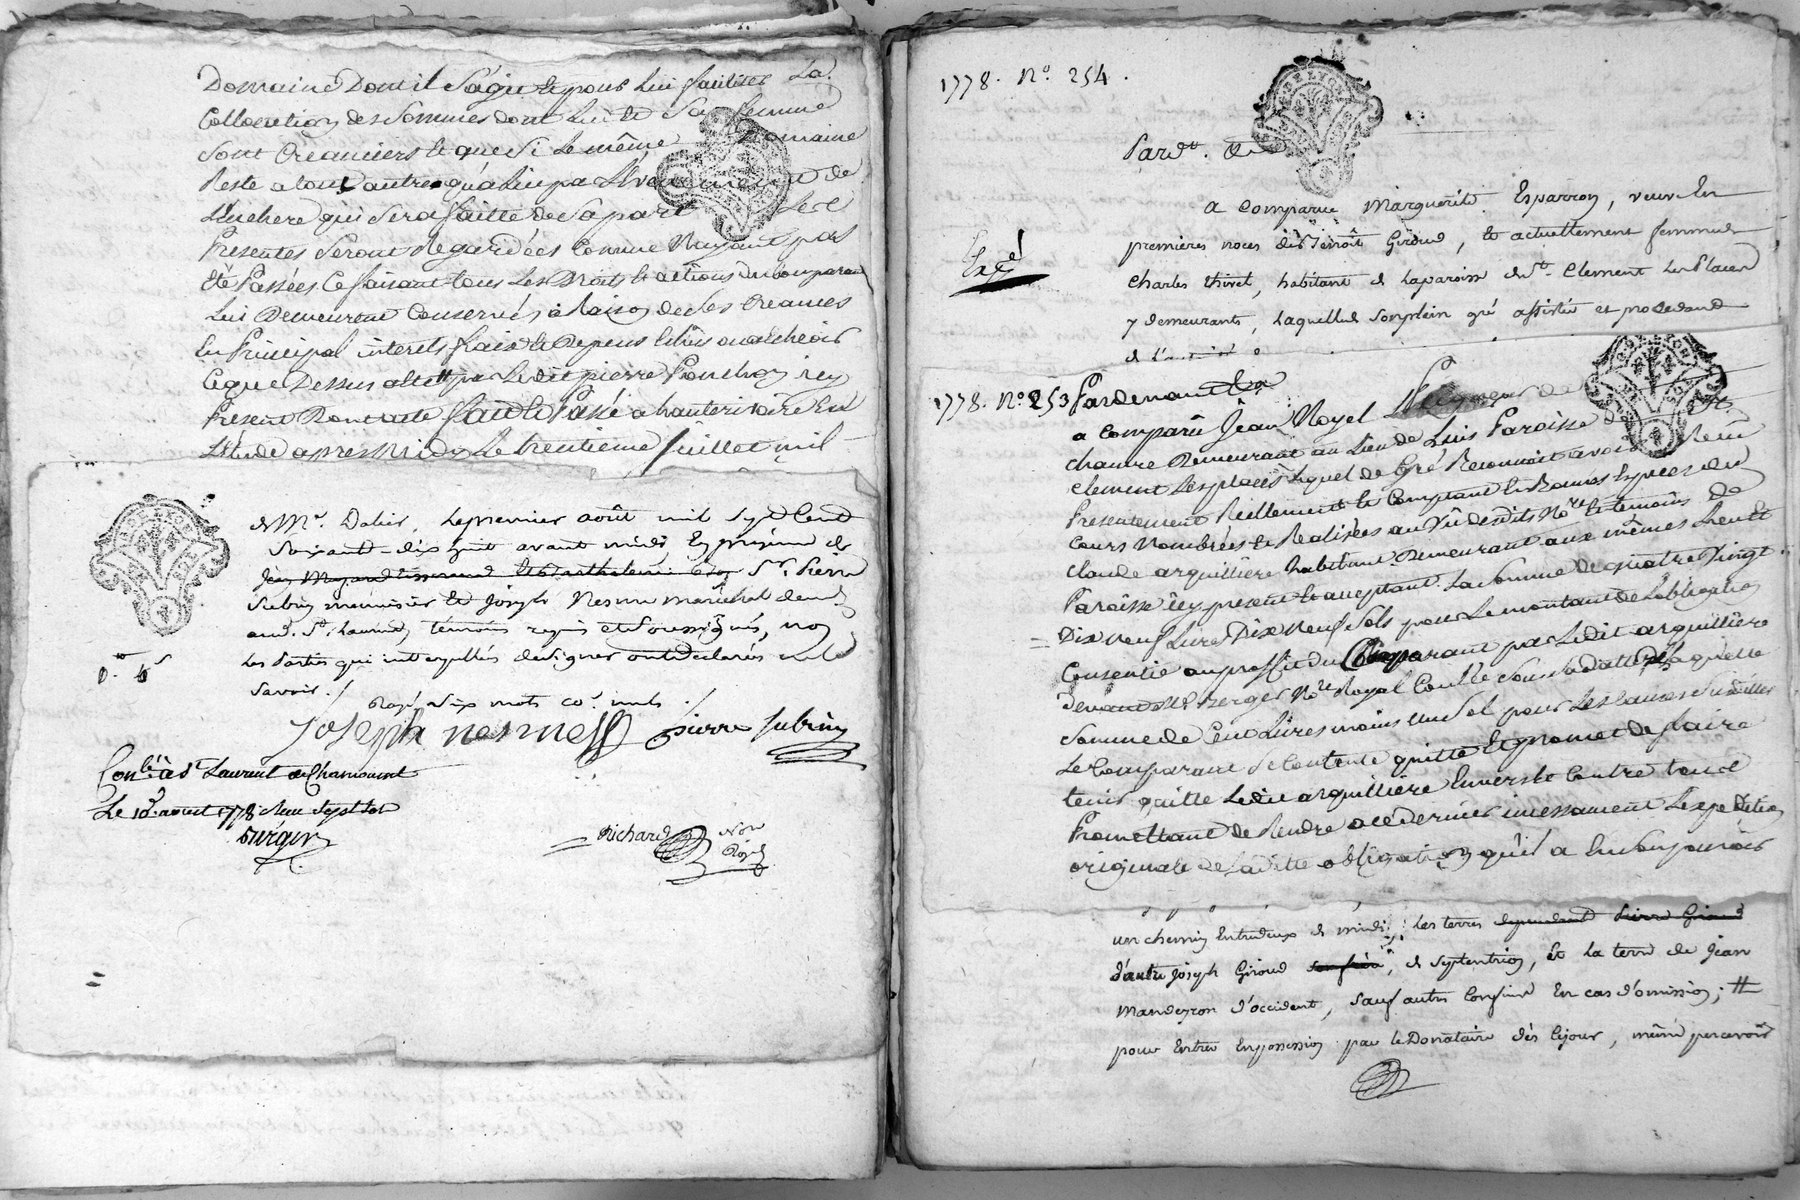 Domaine Dont il S'agit et pour lui faciliter La
Collocation des Sommes dont lui et Sa femme
Sont Creanciers et que Si Le même Domaine
Reste a tout autre qu'a lui par de
L'enchere qui Sera faitte de Sa part Les
Presentes Seront Regardées Comme N'ayant pas
été Passées Ce faisant tous Les Droits et actions du Comparant
Lui Demeurent Conservés a Raison de les Creances
En Principal interets fraix et Depens
Ceque Dessus accepté par Ledit pierre Ponchon icy
Present Dont acte fait et Passé a hauterivoire En
L'étude apres Midy Le trentieme Juillet mil
G. DE LYON
de Mr. Dalier, Le premier août mil Sept Cent
Soixante-dix huit avant midi, En presence de
Sr. Pierre
Subrin menuisier et Joseph Nesme maréchal dem.
aud. St. Laurent, témoins requis et Soussignés, non
Les Parties qui interpellés de Signer ont déclaré ne le
Savoir./
Rayé Six mots co. nuls.
Joseph nesme pierre Subrin
Con.lé à St Laurent de Chamousset
Le 10 aout 1778 Reçu Sept Sols
Richard Nore
Royal
1778. No. 254.
G. DE LYON
Pardt.
a Comparue Marguerite Esparron, veuve En
premieres noces de Benoît Giroud, et actuellement femme de
Charles thivel, habitant de La paroisse de St. Clement Les Places
y demeurants, Laquelle de Son plein gré assistée et procedand
de L'
Expé
1778. No. 253 Pardevant Les
G. DE LYON
a Comparû Jean Noyel Peigneur de
chanvre Demeurant au Lieu de Luis Paroisse de St.
Clement Les places Lequel de Gré Reconnoit avoir Reçu
Presentement Reellement et Comptant En Bonnes Especes du
Cours Nombrées et Realisées au Vû desdits Nore et temoins De
Claude arquilliere habitant Demeurant aux mêmes Lieu et
Paroisse icy present et acceptant La Somme de quatre Vingt
Dix neuf Livres Dix neuf Sols pour Le montant de L'obligation
Consentie au proffit du Comparant par Ledit arquilliere
devant Me Berger Nore Royal Sous Sa datte Laquelle
Somme de Cent Livres moins un Sol pour Les Causes Susdittes
Le Comparant Se Contente quitte Et promet de faire
tenir quitte Ledit arquilliere Envers et Contre tous
Promettant de Rendre a ce dernier incessament L'expedition
originale de Laditte obligation qu'il a En Son pouvoir
un chemin Entredeux de midi; les terres dependant Pierre Giroud
d'autre Joseph Giroud son frère, de Septentrion, Et La terre de Jean
Mandeyron d'occident, Sauf autres Confins En cas d'omission; #
pour Entrer En possession par le Donataire dès Cejour, même percevoir